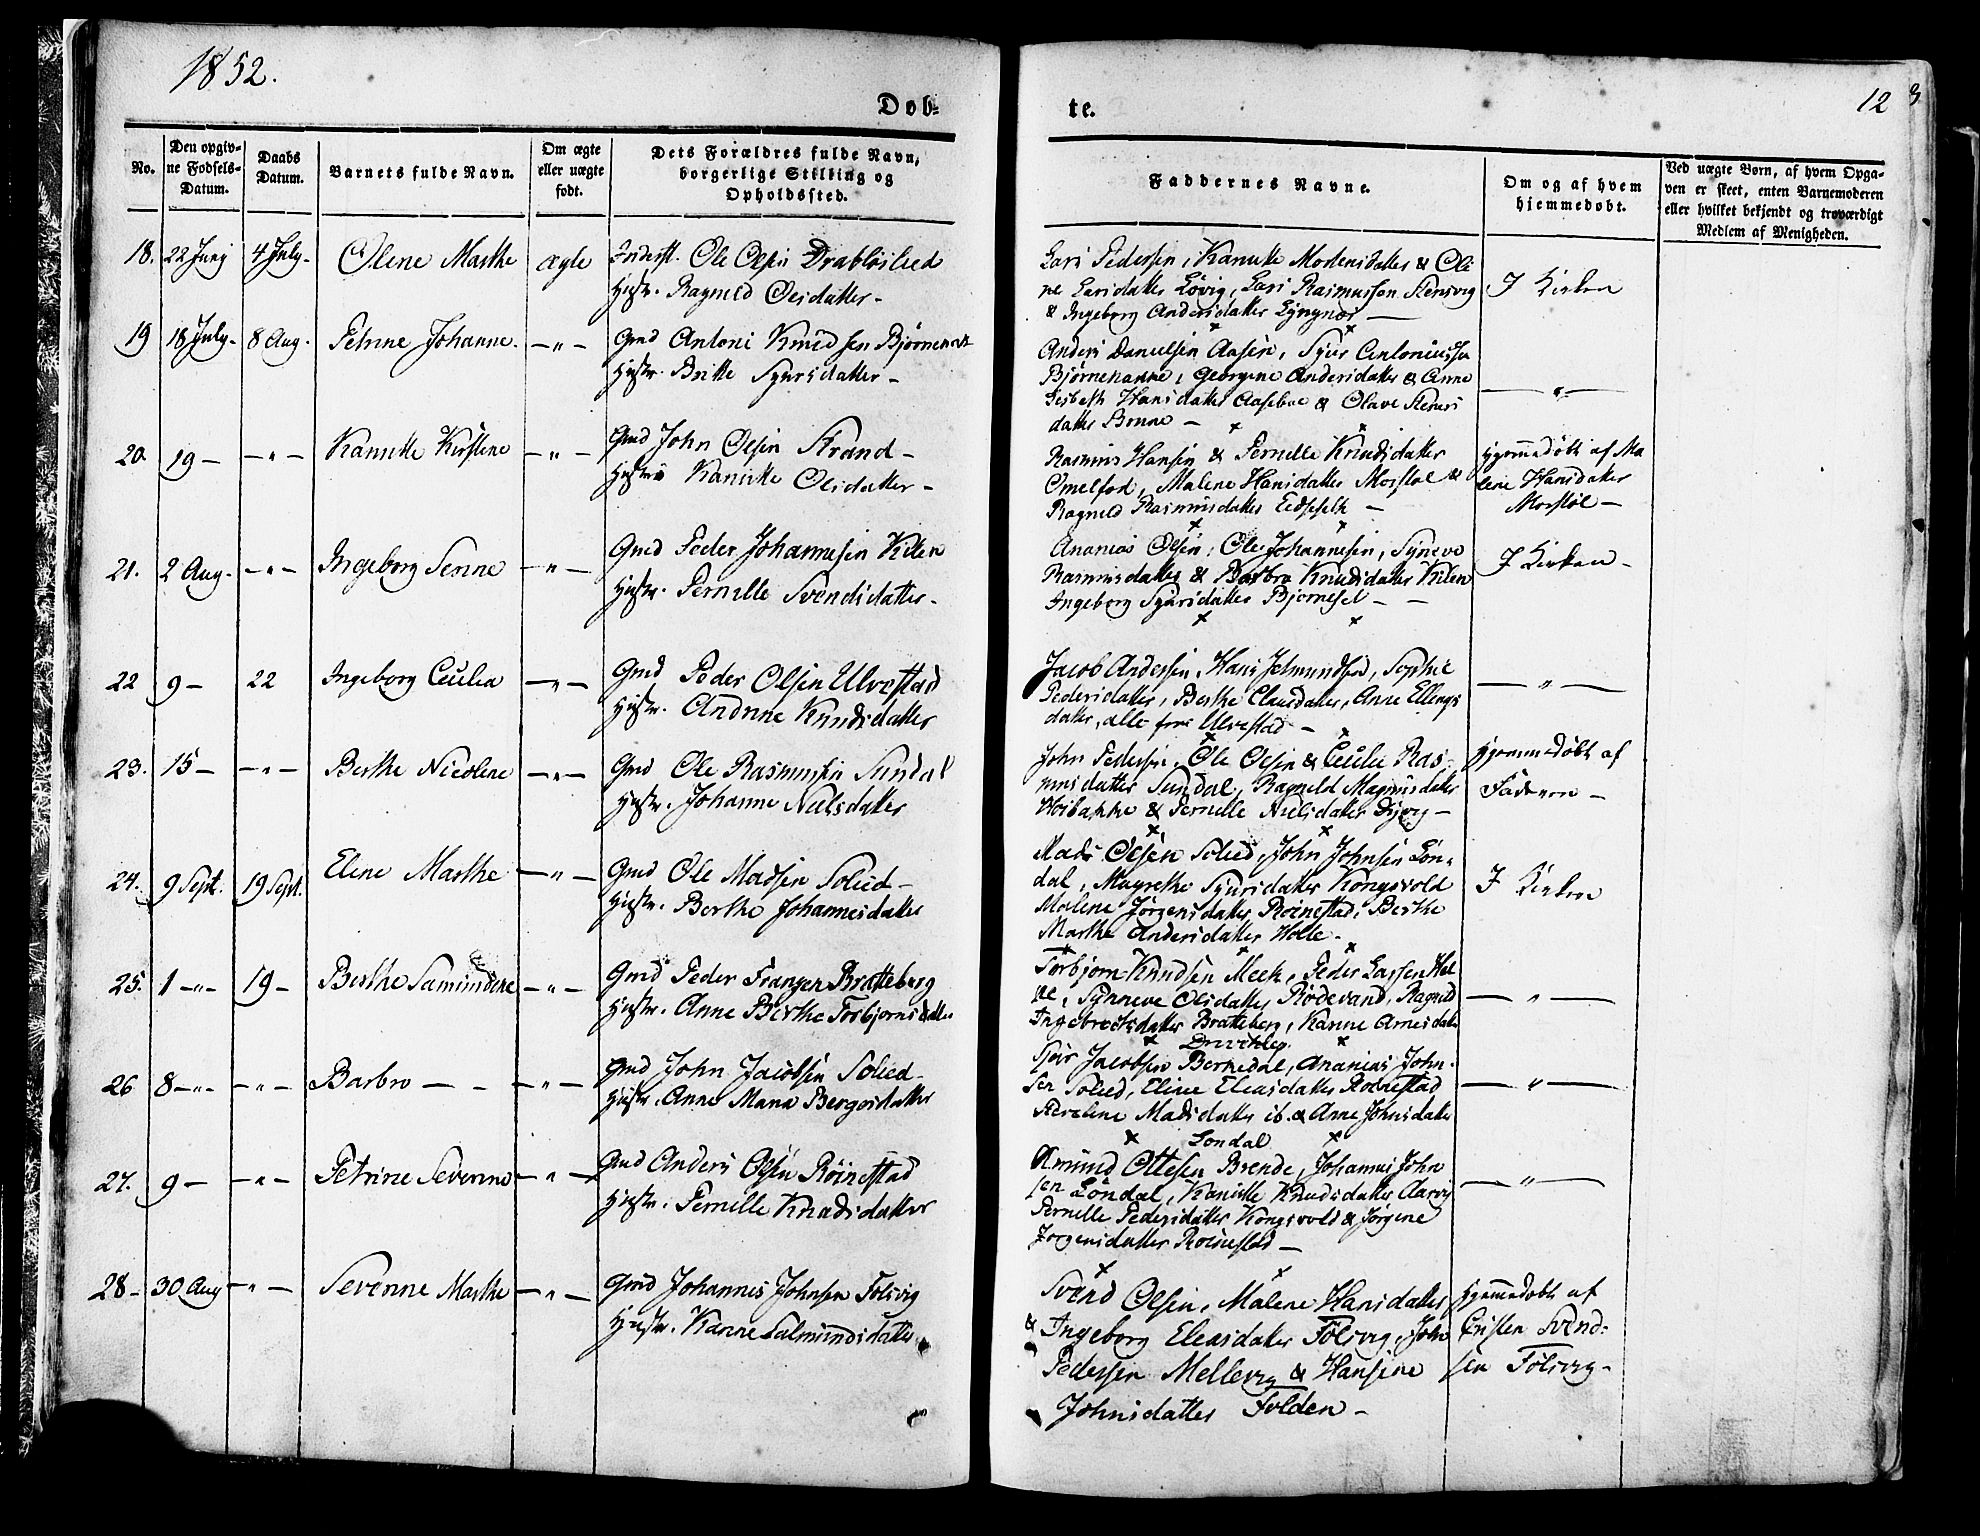 1852.
Døb-
te.
12
No.
Den opgiv-
ne Fødsels-
Datum.
Daabs
Datum.
Barnets fulde Navn.
Om ægte
eller uægte
født.
Dets Forældres fulde Navn,
borgerlige Stilling og
Opholdssted.
Faddernes Navne.
Om og af hvem
hjemmedøbt.
Ved uægte Børn, af hvem Opga-
ven er skeet, enten Barnemoderen
eller hvilket bekjendt og troværdigt
Medlem af Menigheden.
18. 22 Junij 4 July- Olene Marthe ægte Inderst. Ole Olsen Drabløslied
Hustr. Ragnild Olesdatter-
Lars Pedersen, Kanutte Mortensdatter & Oli
ne Larsdatter Løvig, Lars Rasmussen Stensvig
& Ingeborg Andersdatter Lyngnes —
I Kirken
19 18 July- 8 Aug. Petrine Johanne. —"— Gmd Antoni Knudsen Bjørnenak
Hustr. Britte Sjursdatter-
Anders Danielsen Aasen, Sjur Antoniussen
Bjørnenakke, Georgine Andersdatter & Anne
Lisbeth Hansdatter Aasebøe & Olave Stens
datter Brune —
—"—
20. 19 — —"— Kanutte Kirstene —"— Gmd John Olsen Strand-
Hustrue Kanutte Olsdatter-
Rasmus Hansen & Pernille Knudsdatter
Omelfod, Malene Hansdatter Morstøl &
Ragnild Rasmusdatter Eidseseth —
Hjemmedøbt af Ma
lene Hansdatter
Morstøl —
21. 2 Aug. —"— Ingeborg Senne —"— Gmd Peder Johannesen Kilen
Hustr. Pernille Svendsdatter-
Ananias Olsen, Ole Johannesen, Synneve
Rasmusdatter & Barbro Knudsdatter Kilen
Ingeborg Sjursdatter Bjørneset — —
I Kirken-
22 9 — 22 Ingeborg Cecilia —"— Gmd Peder Olsen Ulvestad
Hustr. Andrine Knudsdatter
Jacob Andersen, Hans Jetmundsen, Sophie
Pedersdatter, Berthe Clausdatter, Anne Ellings
datter, alle fra Ulvestad —
—"—
23. 15 — —"— Berthe Nicoline —"— Gmd Ole Rasmussen Sundal
Hustr. Johanne Nielsdatter
John Pedersen, Ole Olsen & Cecilie Ras-
musdatter Sundal, Ragnild Magnusdatter
Høibakke & Pernille Nielsdatter Djvig —
Hjemmedøbt af
Faderen —
24. 9 Sept. 19 Sept. Eline Marthe —"— Gmd Ole Madsen Solied-
Hustr. Berthe Johannesdatter
Mads Olsen Solied, John Johnsen Løn-
dal, Magrethe Sjursdatter Kongsvold
Malene Jørgensdatter Roinestad, Berthe
Marthe Andersdatter Holle-
I Kirken
25. 1 —"— 19 — Berthe Samundine —"— Gmd Peder Franzen Bratteberg
Hustr. Anne Berthe Torbjørnsdatter
Torbjørn Knudsen Meek, Peder Larsen Hel
ne, Synneve Olsdatter Rødevand, Ragnild
Ingebretsdatter Bratteberg, Kanne Arnesdatter
—"—
26 8 —"— —"— Barbro — —"— Gmd John Jacobsen Solied-
Hustr. Anne Maria Bergesdatter
Sjur Jacobsen Bernedal, Ananias John-
sen Solied, Eline Eliasdatter Roinestad
Madsdatter ib. & Anne Johnsdatter
Løndal
—"—
27. 9 — —"— Petrine Severine —"— Gmd Anders Olsen Röinestad
Hustr. Pernille Knudsdatter
Amund Ottesen Brende, Johannes John
sen Løndal, Kanutte Knudsdatter Aarvig
Pernille Pedersdatter Kongsvold & Jørgine
Jorgensdatter Roinestad —
—"—
28- 30 Aug —"— Severine Marthe —"— Gmd Johannes Johnsen Folsvig
Hustr. Kanne Salmundsdatter
Svend Olsen, Malene Hansdatter
& Ingeborg Eleasdatter Folsvig, John
Pedersen Mellevig & Hansine
Johnsdatter Folden-
Hjemmedøbt af
Cristen Svend-
sen Folsvig-